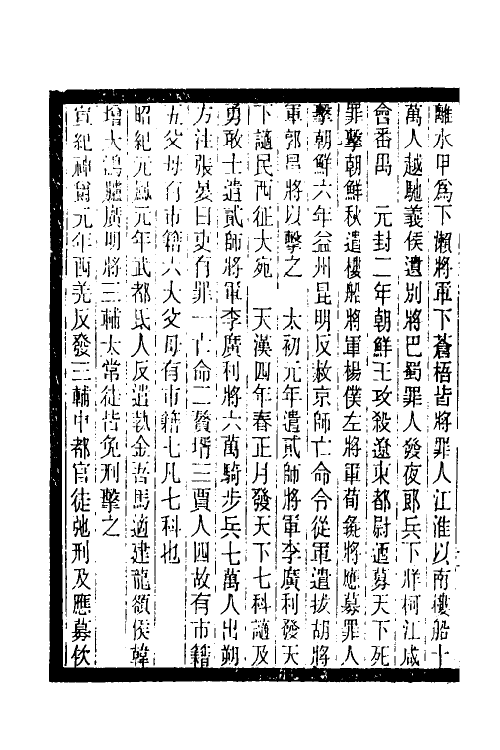 離水甲為下瀨將軍下蒼梧皆將罪人江淮以南樓船十
萬人越馳義侯遺別將巴蜀罪人發夜郎兵下牂柯江咸
會番禺　元封二年朝鮮王攻殺遼東都尉迺募天下死
罪擊朝鮮秋遣樓船將軍楊僕左將軍荀彘將應募罪人
擊朝鮮六年益州昆明反赦京師亡命令從軍遣拔胡將
軍郭昌將以擊之　太初元年遣貳師將軍李廣利發天
下讁民西征大宛　天漢四年春正月發天下七科讁及
勇敢士遣貳師將軍李廣利將六萬騎步兵七萬人出朔
方注張晏曰吏有罪一亡命二贅壻三賈人四故有市籍
五父母有市籍六大父母有市籍七凡七科也
昭紀元鳳元年武都氐人反遣執金吾馬適建龍頟侯韓
增大鴻臚廣明將三輔太常徒皆免刑擊之
宣紀神爵元年西羌反發三輔中都官徒弛刑及應募佽